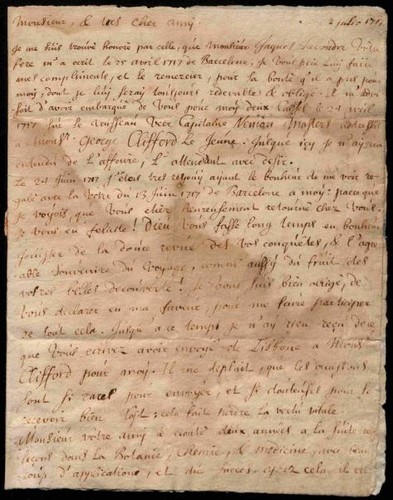 Monsieur, & tres cher amy.
2 julio 171
Je me suis trouvé honoré par celle, que Monsieur Jaques
frere m'a ecrit le 25 avril 1717 de Barcelone, je vous prie luy faire
mes complimens, et le remercier, pour la bonté qu'il a pris pour
moy, dont je luy seray tousjours redevable & obligé. Il m'
fait d'avoir embarqué de vous pour moy deux le 24 avril
1717 sur le vaisseau Capitaine Masters
à Mons.r George Clifford le Jeune. Jusques icy je n'ay
entendu de l'affaire, l'attendant avec desir.
Le 24 Juin 1717 j'étois tres rejouy ayant le bonheur de me voir re-
galé avec la votre du 13 Juin 1717 de Barcelone à moy: parceque
je voyois, que vous etiez heureusement retourné chez vous
je vous en felicite! Dieu vous fasse long temps en bonheur
jouisser de la douce revue de vos conquêtes, & l'agre-
able souvenire du voyage, comme aussy du fruit des
votres belles decouvertes! Je vous suis bien obligé, de
vous declarer en ma faveur, pour me faire participer
de tout cela. Jusqu'a ce temps je n'ay rien reçu de ce
que vous ecrivez avoir envoyé de Lisbone a Mons.r
Clifford pour moy. Il me deplait, que les occasions
sont si rares pour envoyer, et si douteuses pour
recevoir bien tost: cela faite perdre la vertu vitale
Monsieur votre amy à conté deux années a la suite
leçons dans la Botanie, Chemie, & medicine, avec beau-
coup d'application, et du succes. apres cela, il est